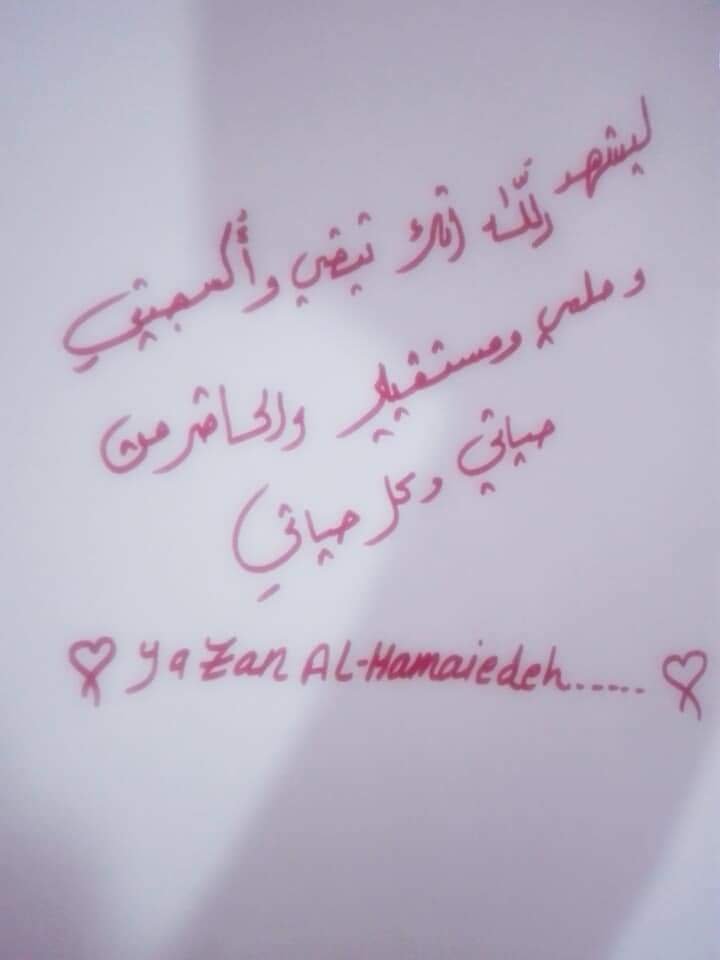 ليشهد الله انك نبضي وأكسجيني
وحلمي ومستقبلي والحاضر من
حياتي وكل حياتي
YaZan AL-Hamaiedeh......